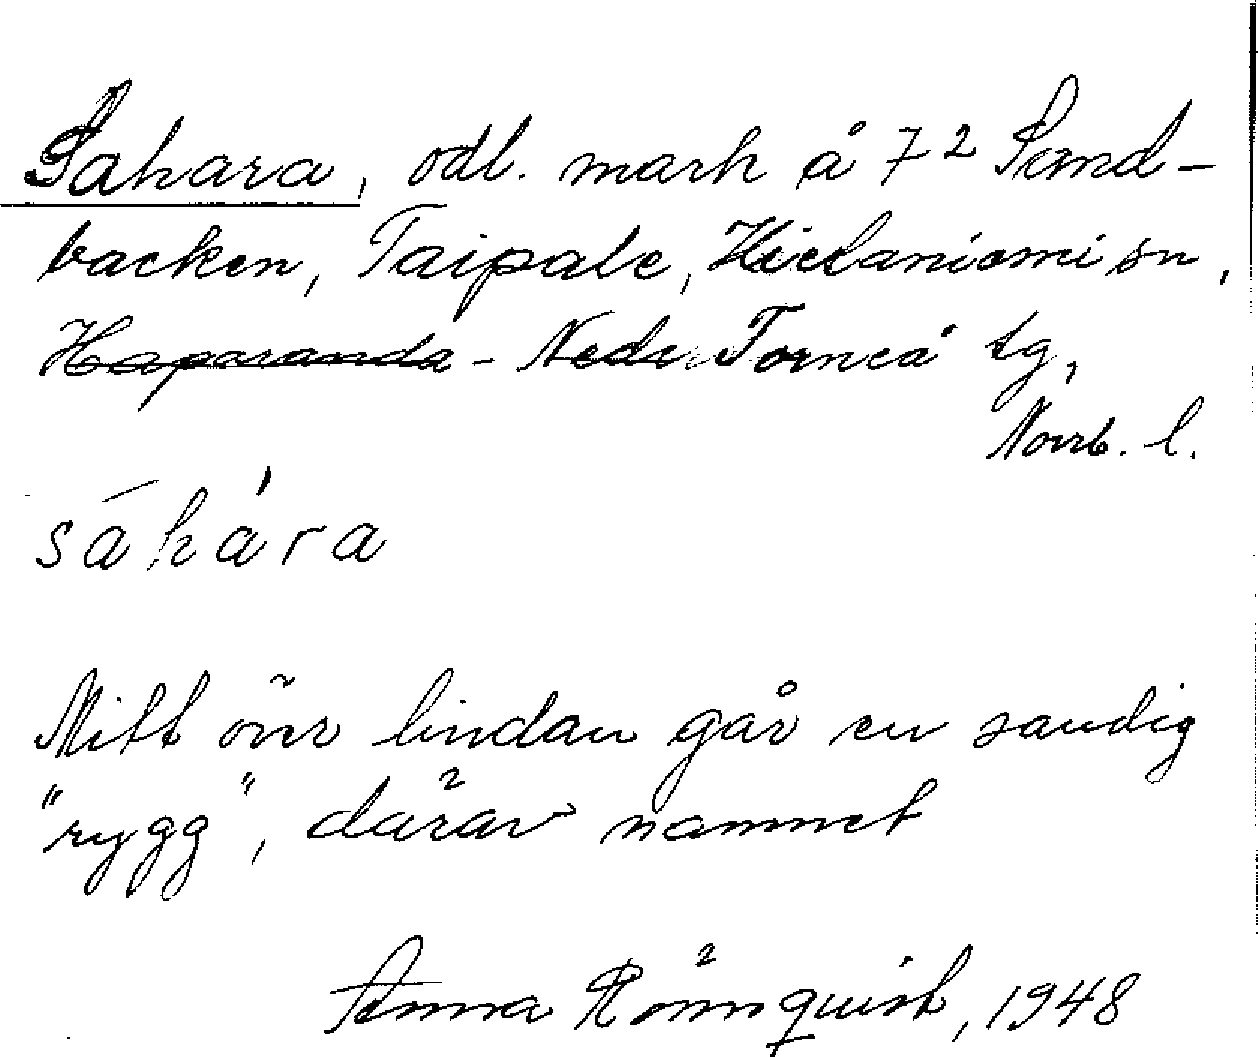 Sahara, odl. mark å 7² Sand-
backen, Taipale, Hietaniemi sn,
Haparanda - Neder Torneå tg,
Norrb. l.
sáhára
Mitt över lindan går en sandig
"rygg", därav namnet
Anna Rönnquist, 1948